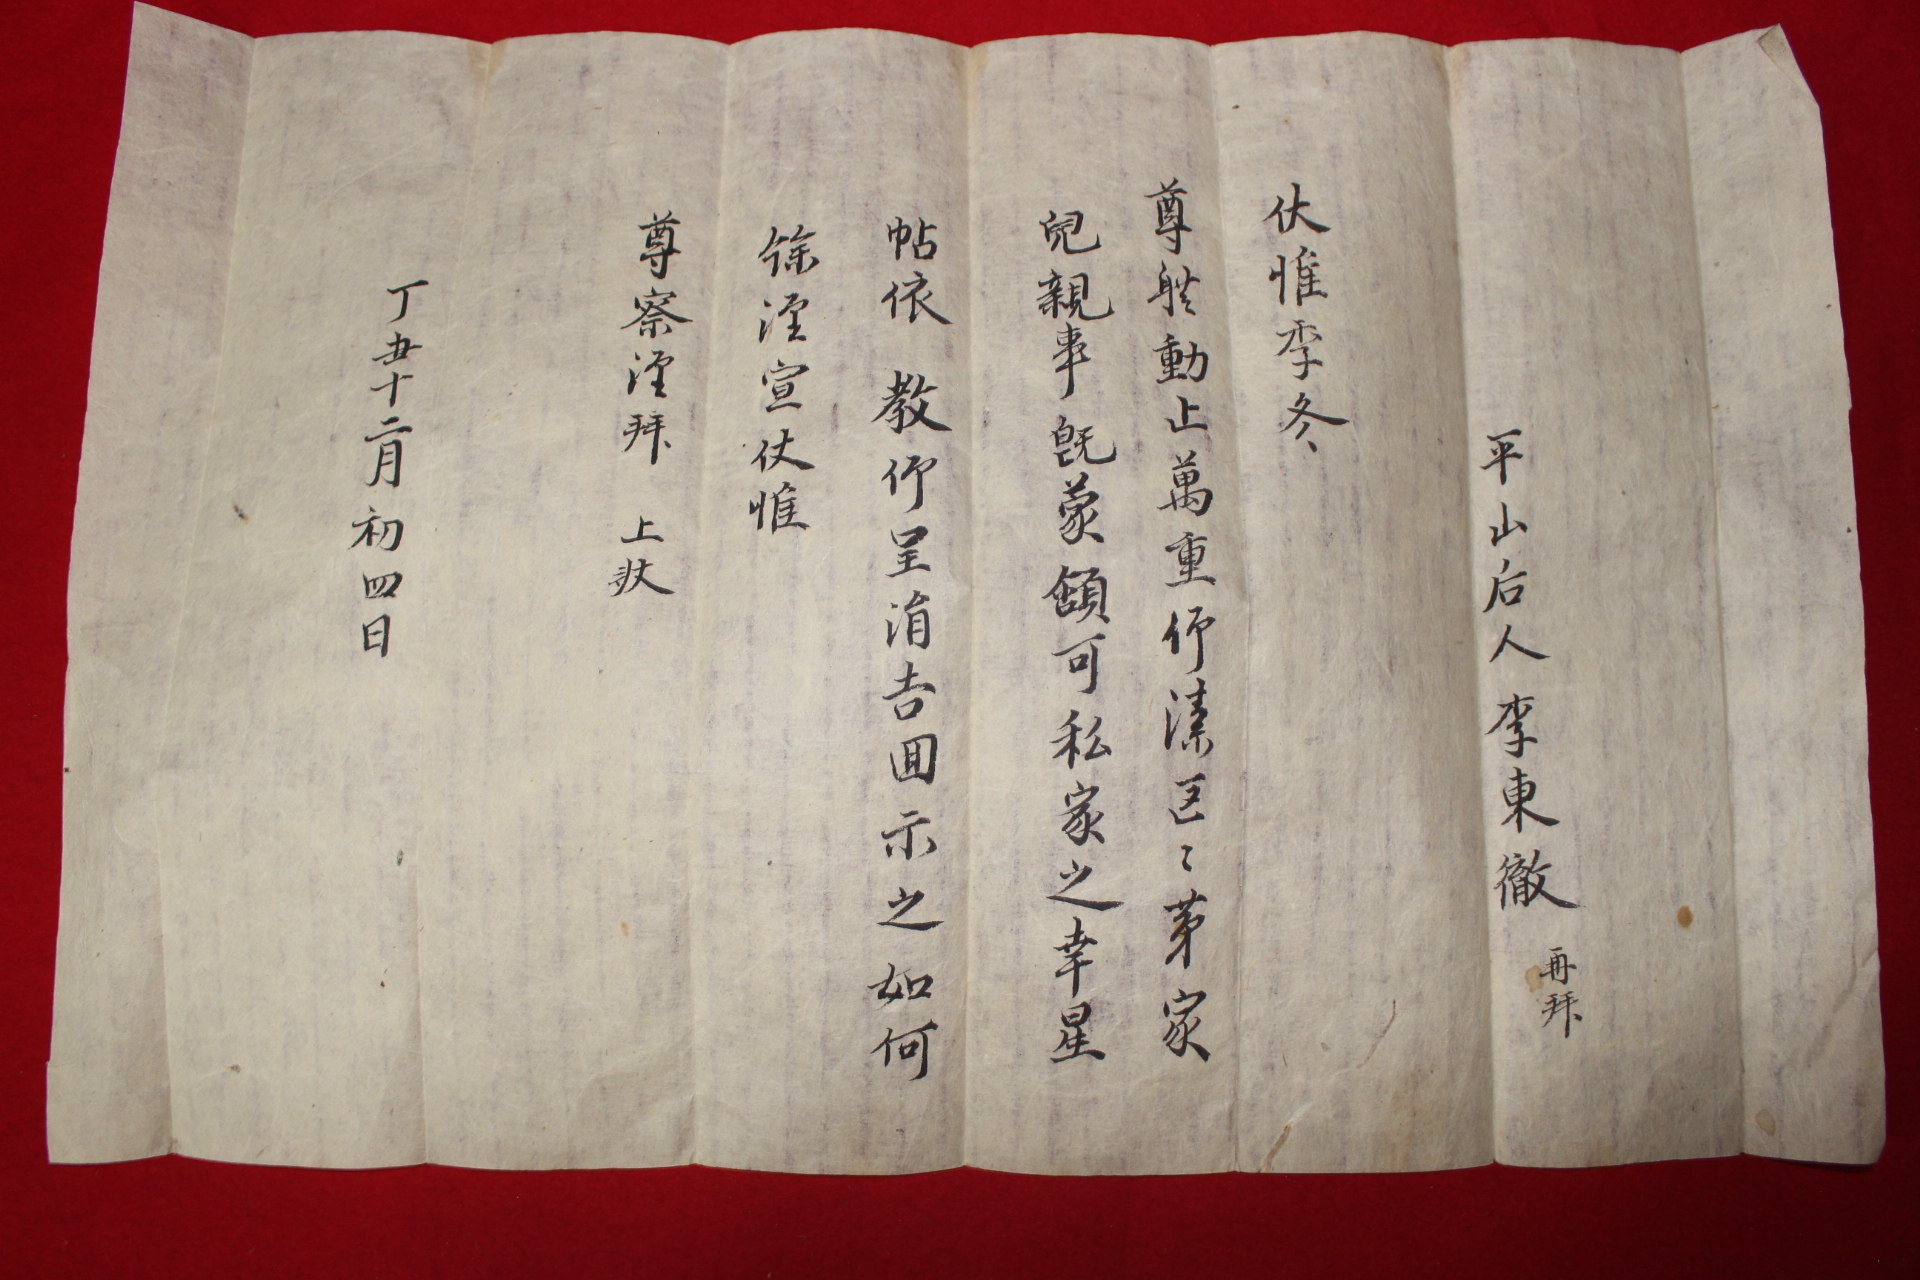 平山后人李東徹 再拜
伏惟季冬
尊體動止萬重仰溸區〻第家
兒親事旣蒙頷可私家之幸星
帖依 教仰呈涓吉回示之如何
餘謹宣伏惟
尊察謹拜 上狀
丁丑十二月初四日